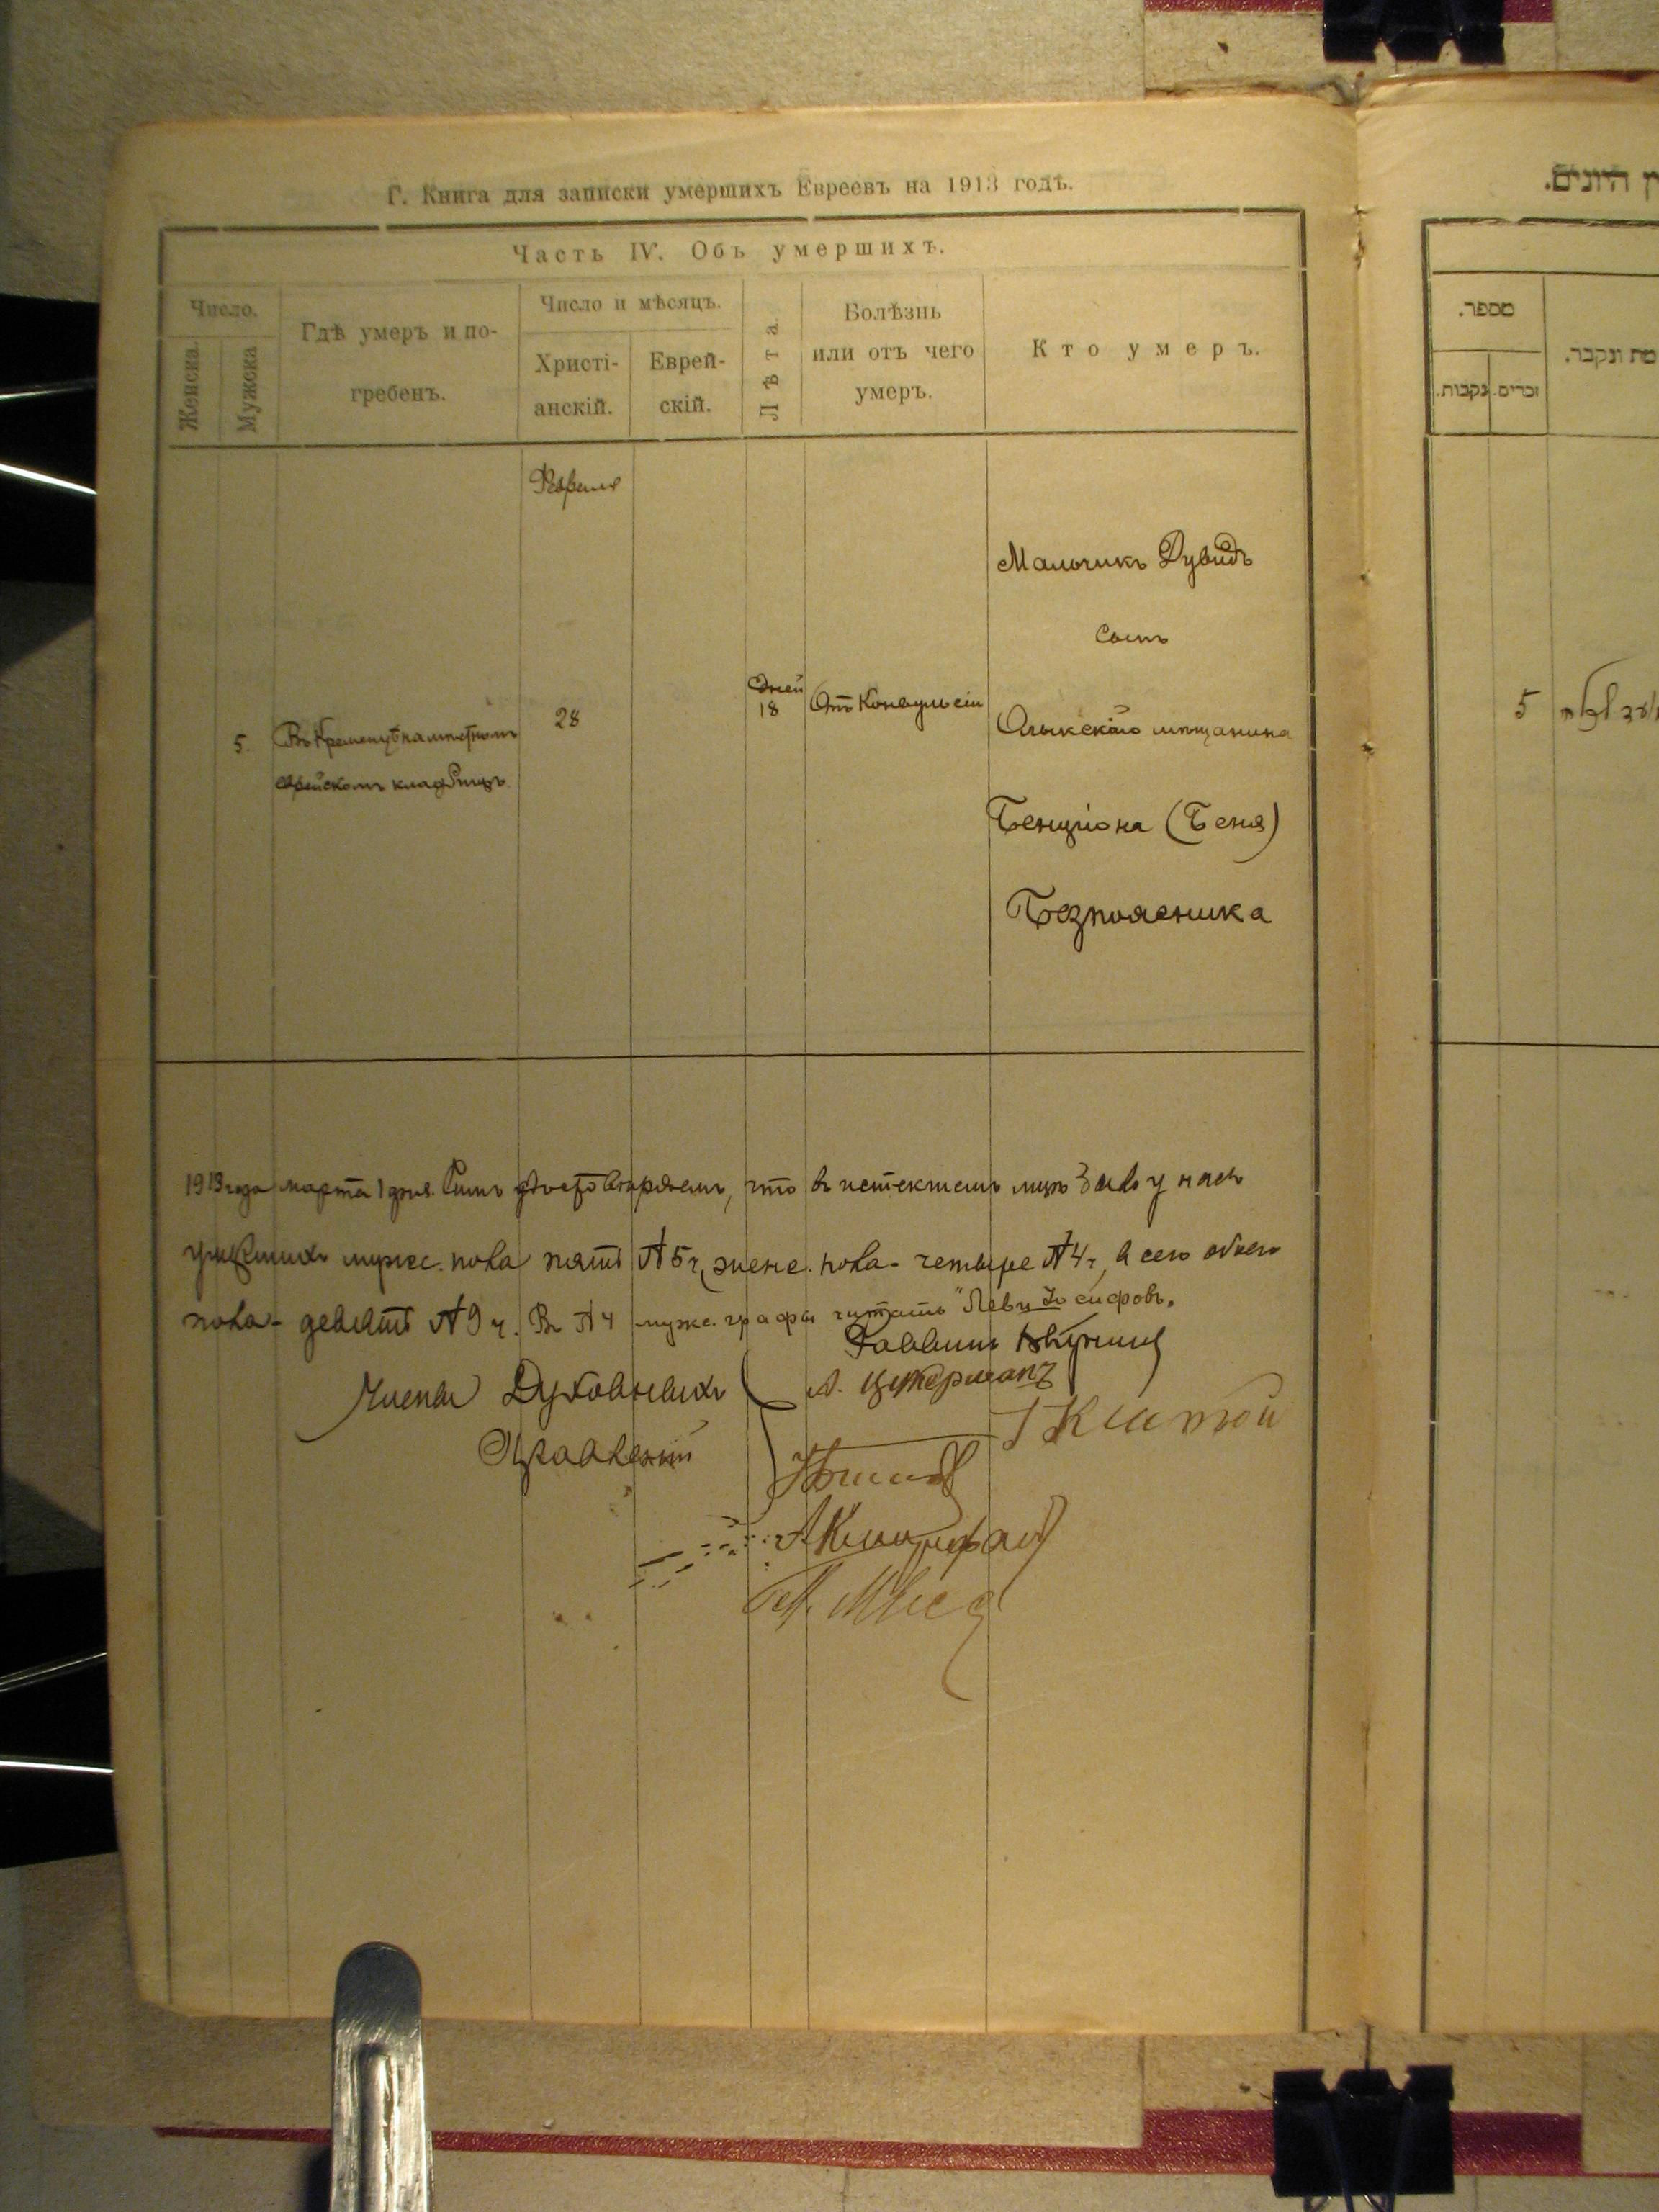 Г. Книга для записки умершихъ Евреевъ на 1913 годъ.
Часть IV. Объ умершихъ.
Число.
Женска.
Мужска
Гдѣ умеръ и по-
гребенъ.
Число и мѣсяцъ.
Христі-
анскій.
Еврей-
скій.
Лѣта.
Болѣзнь
или отъ чего
умеръ.
Кто умеръ.
Февраля
5.
Въ Кременцѣ на мѣстномъ
еврейскомъ кладбищѣ.
28
Дней
18
Отъ Конвульсіи
Мальчикъ Дувидъ
сынъ
Олыкскаго мѣщанина
Бенціона (Беня)
Безпоясника
1913 года марта 1 дня. Симъ удостовѣряемъ, что въ истекшемъ мцѣ было у насъ
умершихъ мужс. пола пять № 5 ч, женс. пола - четыре № 4 ч, а всего обоего
пола - девять № 9 ч. Въ № 4 мужс. графы читать "Леви Іосифовъ.
Раввинъ
Члены Духовныхъ
А. Цукерманъ
Правленій
היונים.
מספר.
זכרים.
נקבות.
מת ונקבר.
5